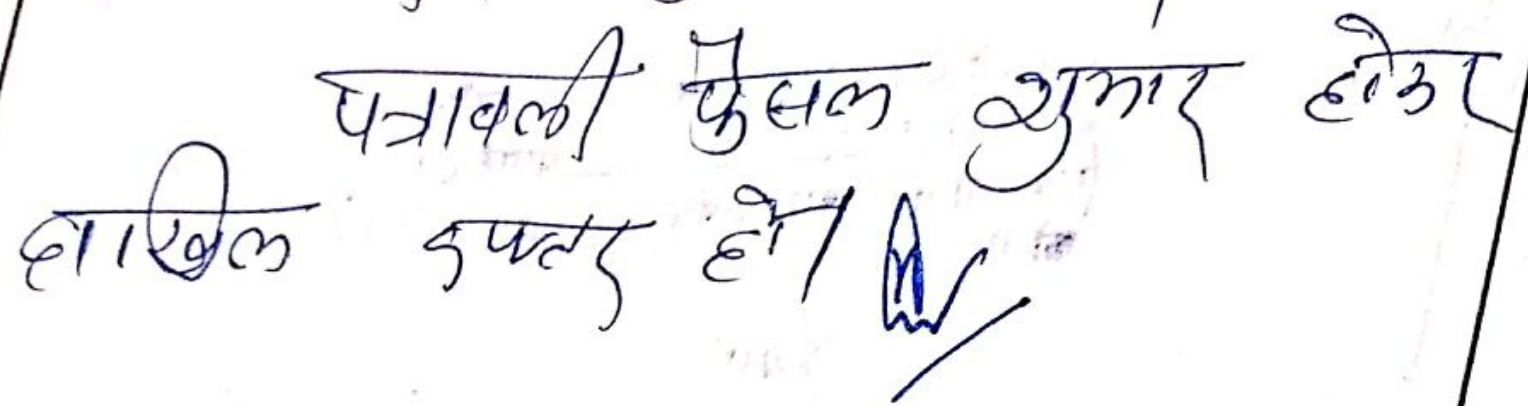 पत्रावली फैसल शुमार होकर
दाखिल दफ्तर हो।